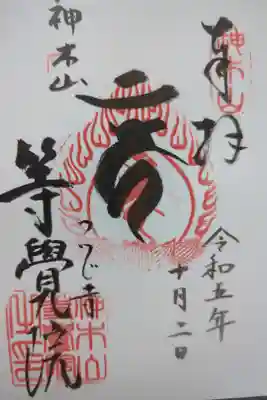 奉拝
神木山
令和五年
十月二日
つつじ寺
神木山
等覺院